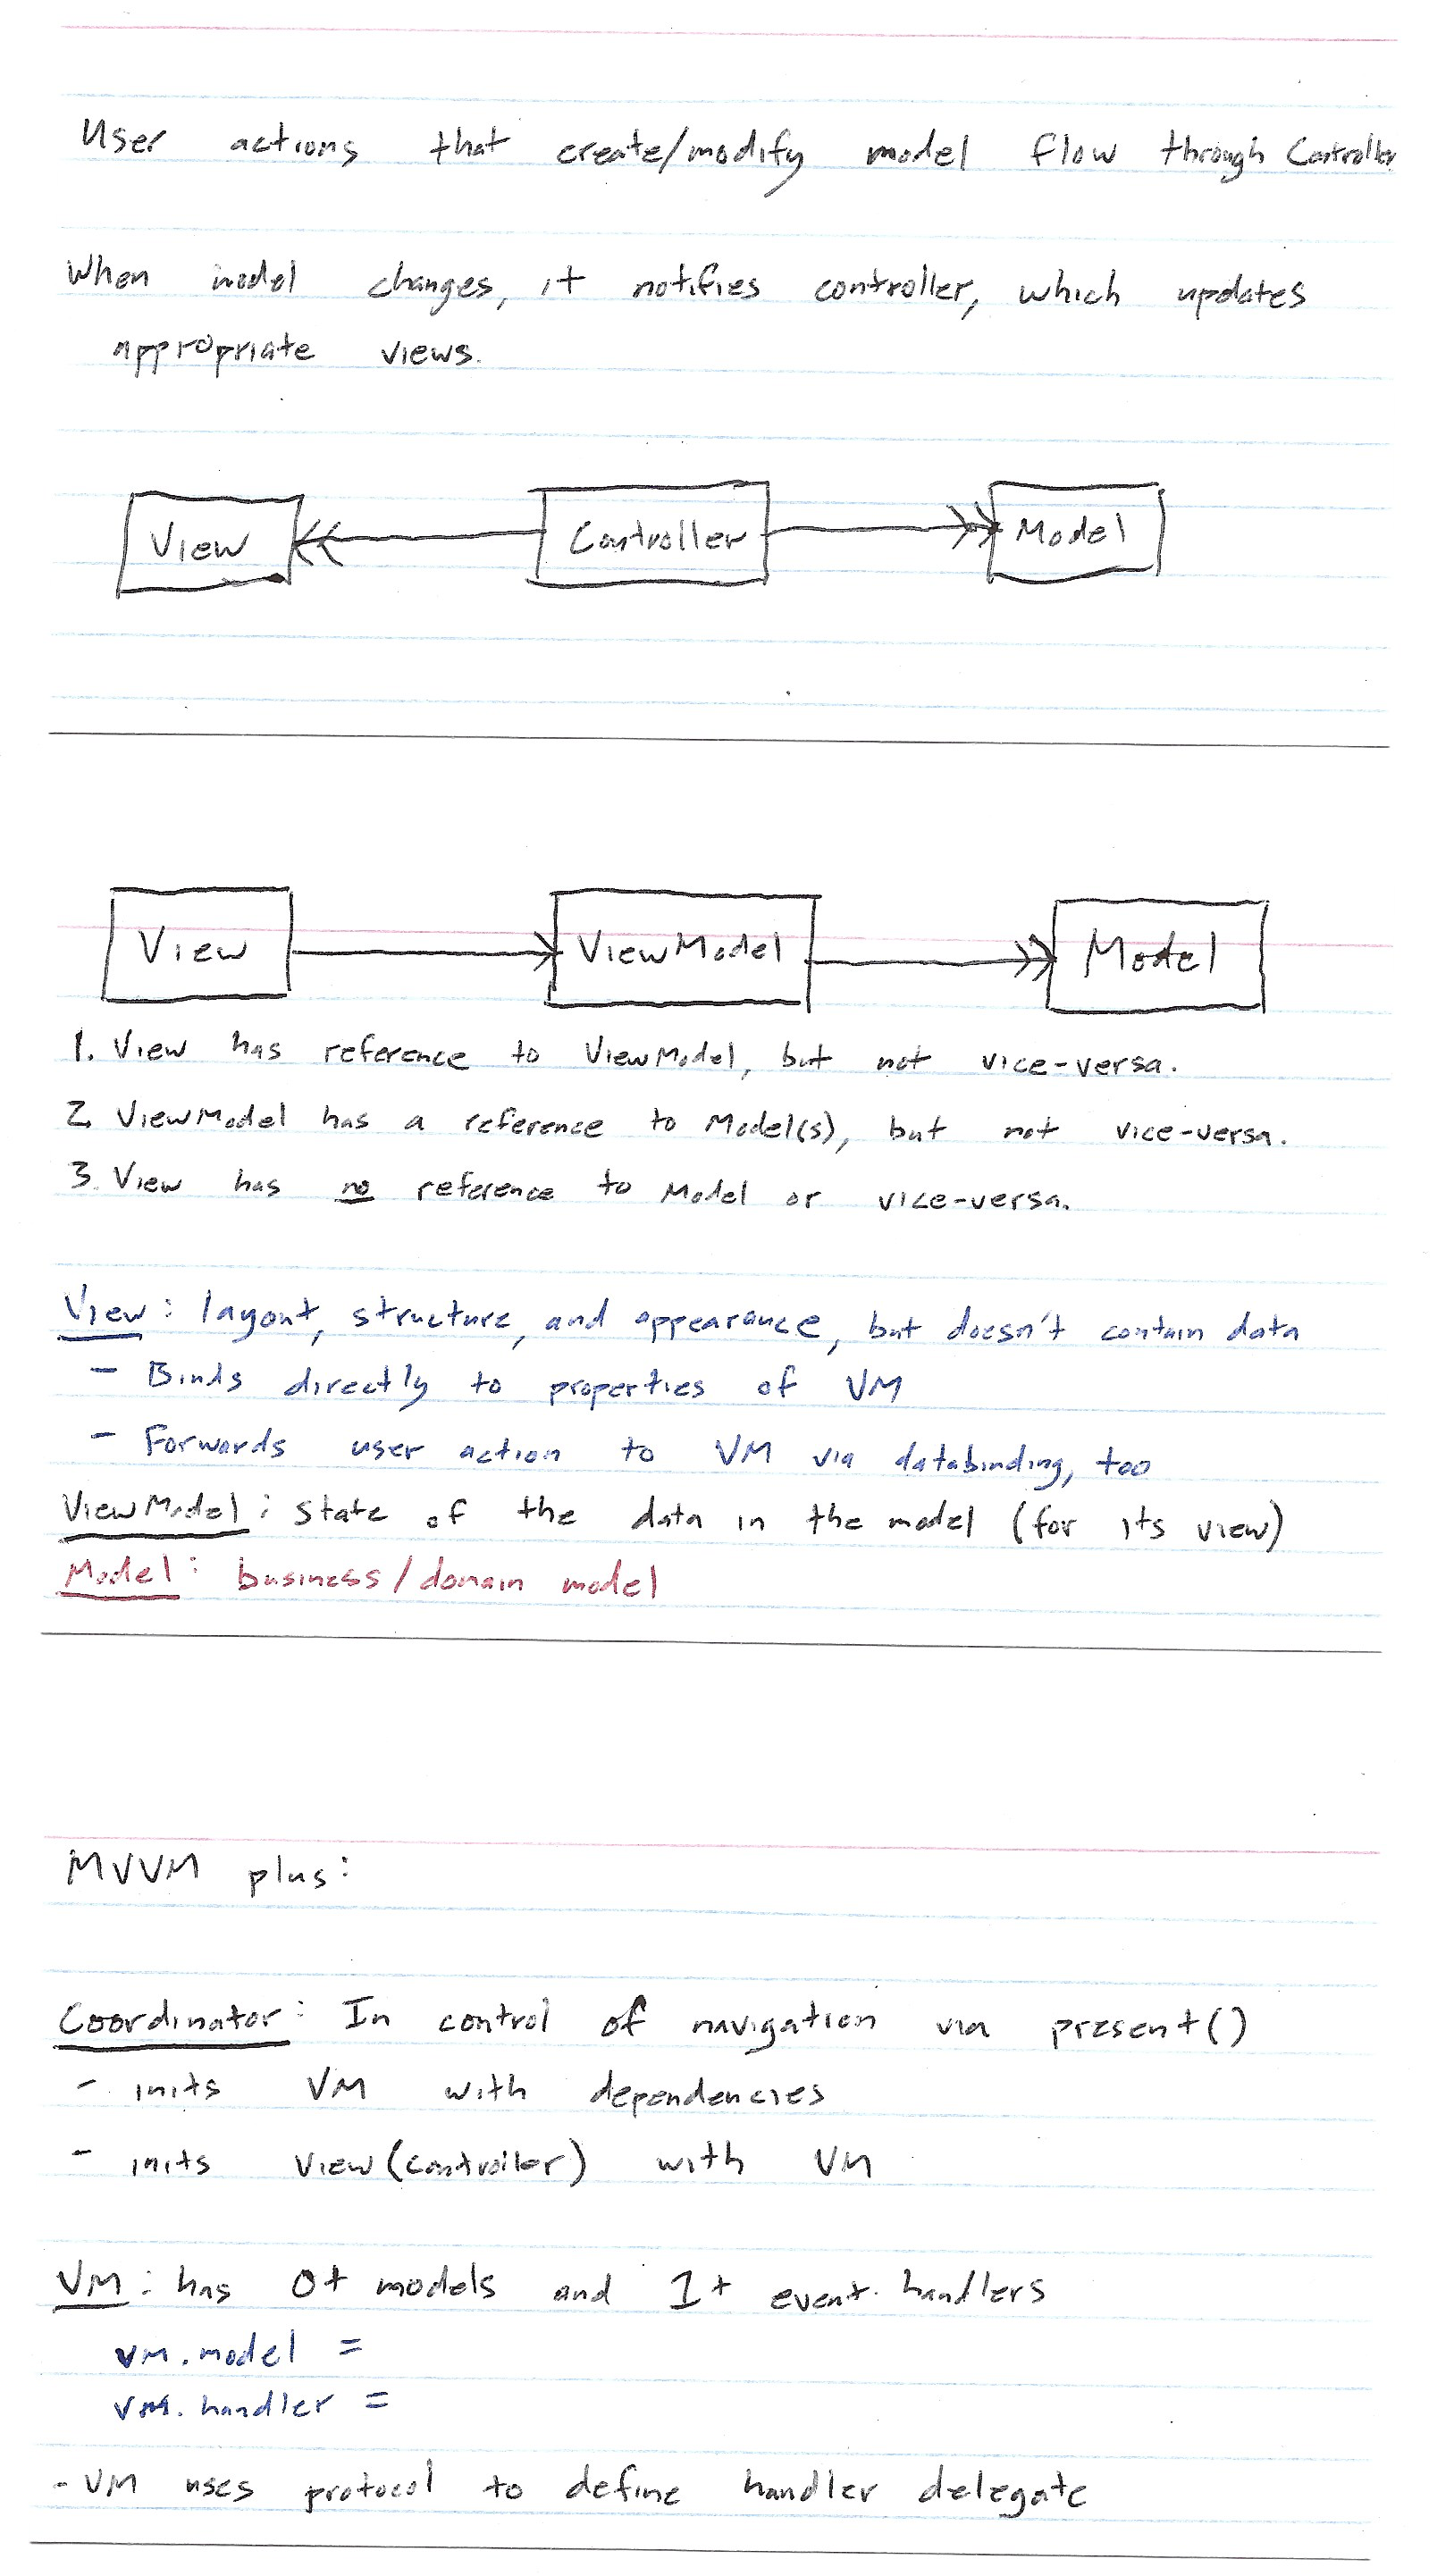 User actions that create/modify model flow through Controller
When model changes, it notifies controller, which updates
appropriate views.
View Controller Model
View ViewModel Model
1. View has reference to ViewModel, but not vice-versa.
2. ViewModel has a reference to Model(s), but not vice-versa.
3. View has no reference to Model or vice-versa.
View: layout, structure, and appearance, but doesn't contain data
- Binds directly to properties of VM
- Forwards user action to VM via databinding, too
ViewModel: state of the data in the model (for its view)
Model: business/domain model
MVVM plus:
Coordinator: In control of navigation via present()
- inits VM with dependencies
- inits View(controller) with VM
VM: has 0+ models and 1+ event handlers
vm.model =
vm.handler =
- VM uses protocol to define handler delegate